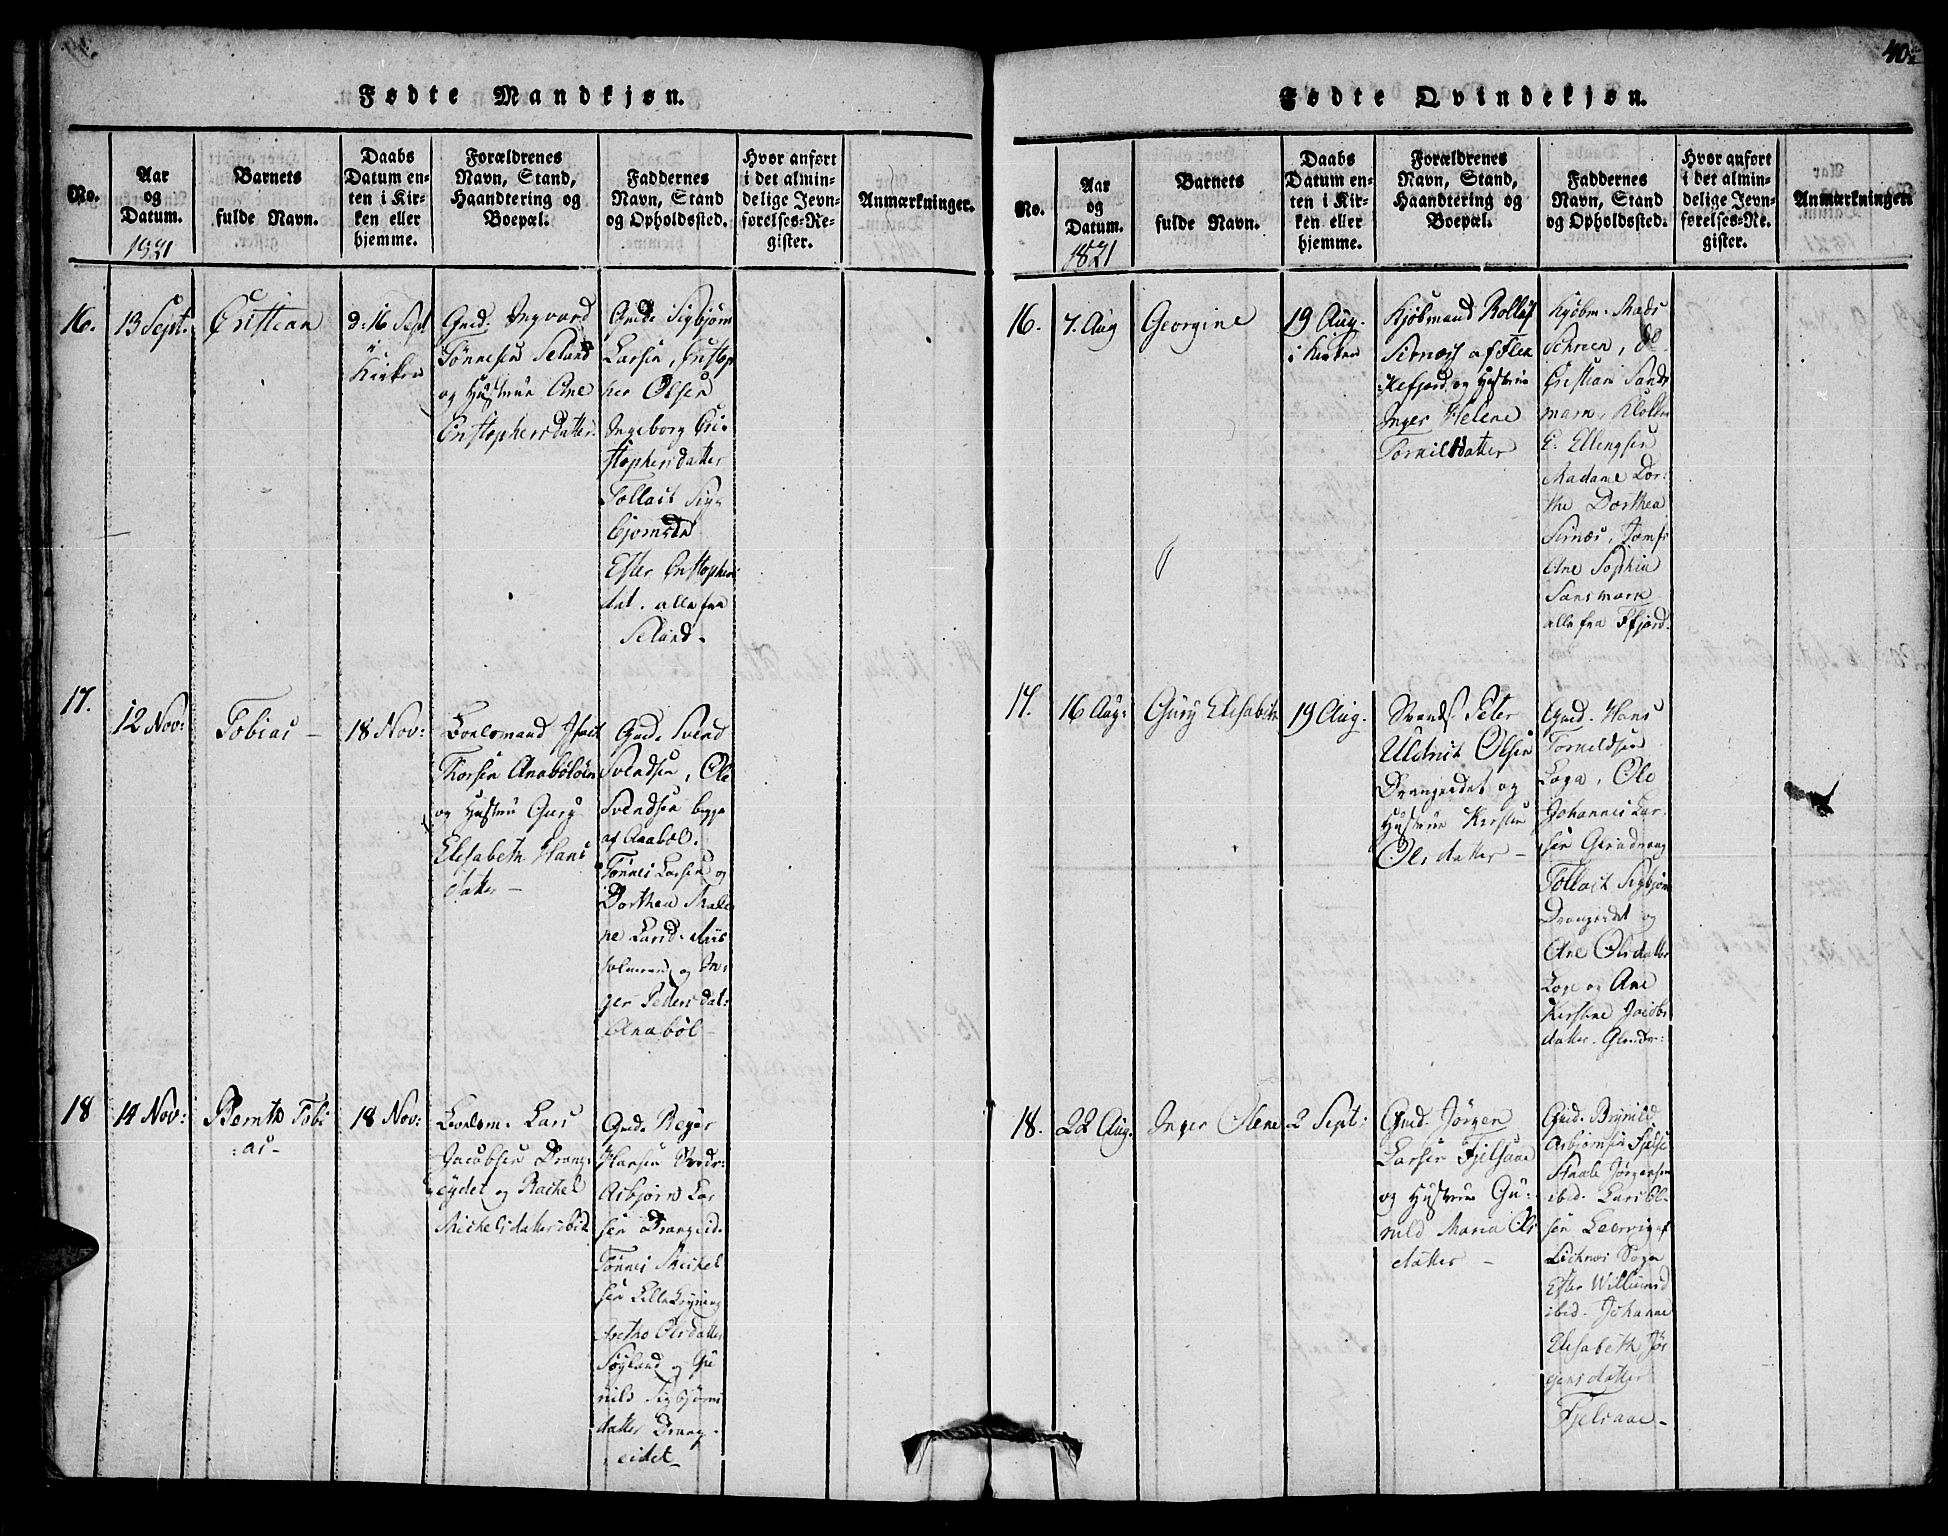 40
Fødte Mandkjøn.
No.
Aar
og
Datum.
1821
Barnets
fulde Navn.
Daabs
Datum en-
ten i Kir-
ken eller
hjemme.
Forældrenes
Navn, Stand,
Haandtering og
Boepæl.
Faddernes
Navn, Stand
og Opholdssted.
Hvor anført
i det almin-
delige Jevn-
førelses-Re-
gister.
Anmærkninger.
16.
13 Sept.
Cristian
d. 16 Sept
i
Kirken
Gmd. Ingvard
Tønnesen Seland
og Hustrue Ane
Cristophersdatter
Gmd. Sigbjørn
Larsen, Cristop
her Olsen
Ingeborg Cri-
stophersdatter
Tollact Sig-
bjornsen
Ester Cristophers
dat. alle fra
Seland.
17.
12 Nov:
Tobias
18 Nov:
Bonlsmand
Thorsen Anabøløen
og Hustrue Gury
Elisabeth Hans
datter
Gmd. Svend
Svendsen, Ole
Svendsen begge
af Anabøl.
Tønnes Larsen og
Dorthea Male
ne
og In-
ger Pedersdat:
Anabøl
18
14 Nov:
Bernth Tobi
:as-
18 Nov:
Lars
Jacobsen Drang-
eydet og Rachel
Michelsdatter ibid
Gmd. Reyer
Hansen
Asbjørn Lar
sen Drangeid.
Tønnes Michel
sen
Olsdatter
Søyland og Gu
nild Sigbjørns
datter Drang-
eidet
Fødte Qvindekjøn.
No.
Aar
og
Datum.
1821
Barnets
fulde Navn.
Daabs
Datum en-
ten i Kir-
ken eller
hjemme.
Forældrenes
Navn, Stand,
Haandtering og
Boepæl.
Faddernes
Navn, Stand
og Opholdssted.
Hvor anført
i det almin-
delige Jevn-
førelses-Re-
gister.
Anmærkninger
16.
7. Aug
Georgine
19 Aug.
i Kirken
Kjøbmand Rollef
Sirnæs af Flek
kefjord og Hustrue
Inger Helene
Tornilsdatter
Kjøbm. Mads
Schreen, do
Cristian Sands
mark, Klokker
E. Ellingsen
Madame Dor-
the Dorthea
Sirnæs, Jomfr
Ane Sophia
Sansmark
alle fra Ffjord.
17.
16 Aug:
Gury Elisabeth
19 Aug.
Strands. Peter
Uldrick Olsen
Drangeidet og
Hustrue Kirstine
Olsdatter
Gmd. Hans
Tornildsen
Loga, Ole
Johannes Lar
sen Girndrang
Tollact Sigbjørn
Drangeidet og
Ane Olsdatter
Loge og Ane
Kirstine Jacobs
datter.
18.
22 Aug.
Inger Olene
2 Sept:
Gmd. Jørgen
Larsen Fjelsaae
og Hustrue Gu-
nild Maria Ols
datter
Gmd. Brynild
Asbjørnsen
Staale Jørgensen
ibid. Lars Ol-
sen Leervig af
Sogn
Ester Willumsd
ibid. Johanne
Elisabeth Jør
gensdatter
Fjelsaae